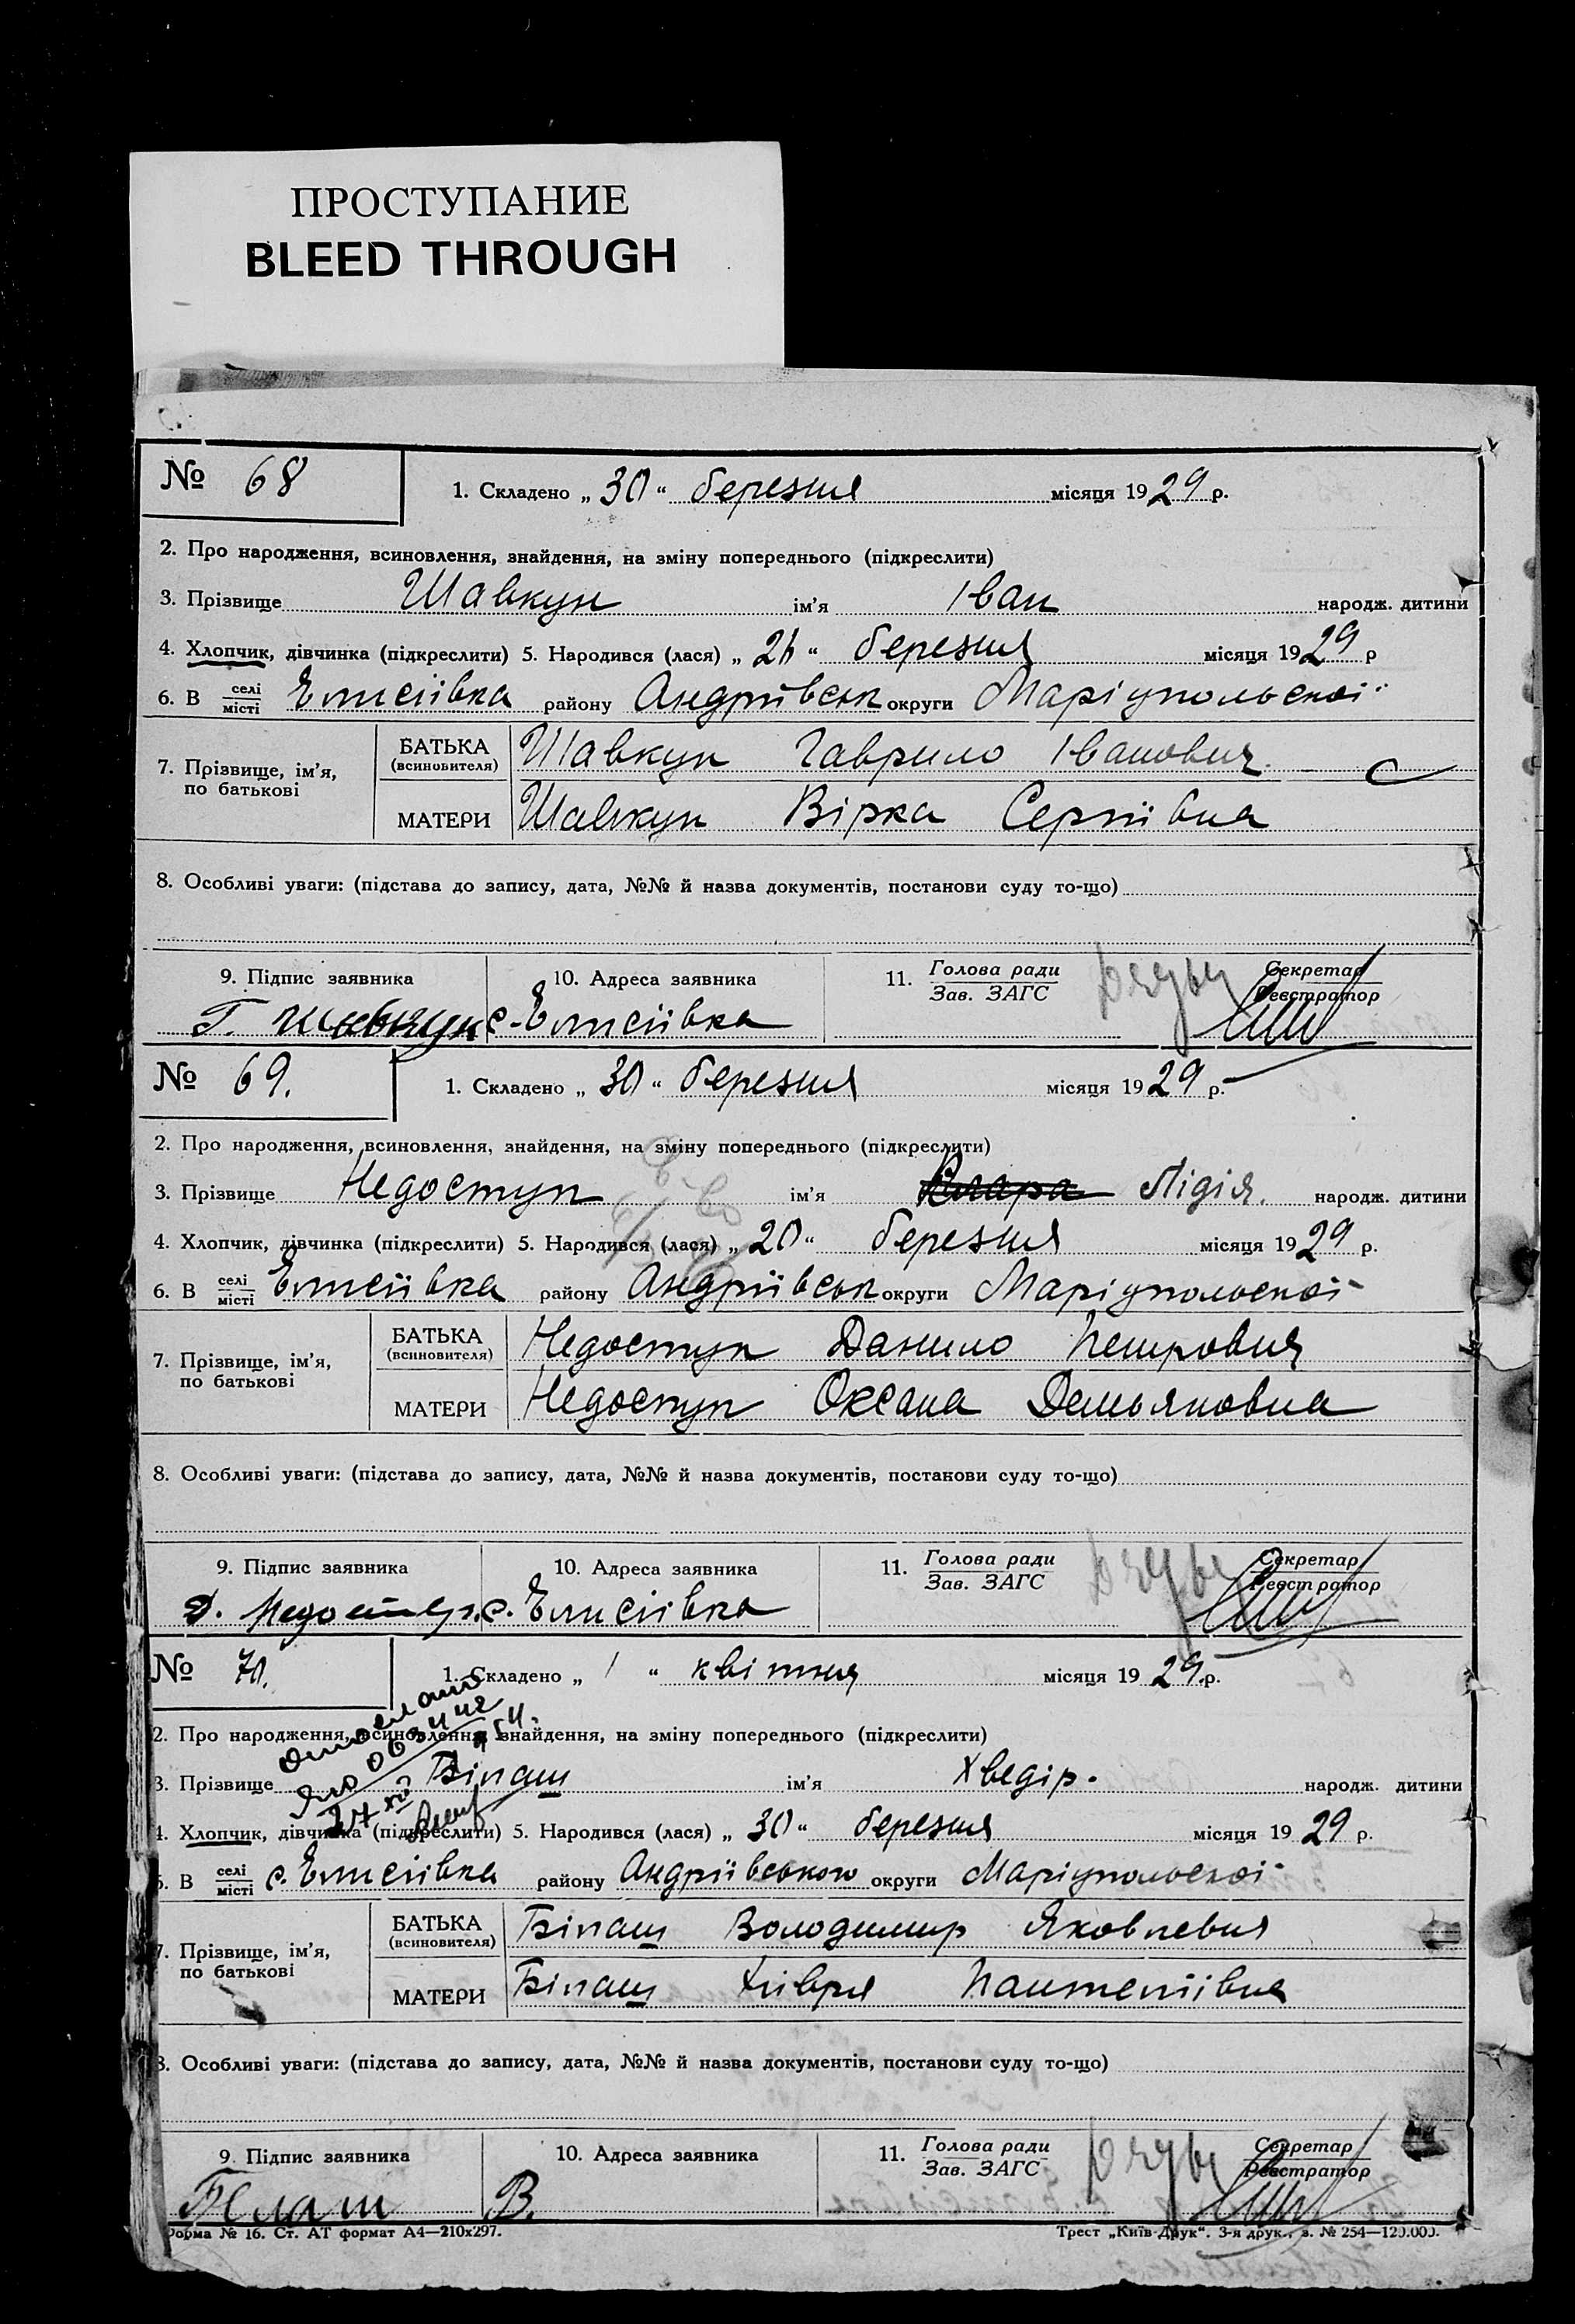 ПРОСТУПАНИЕ
BLEED THROUGH
№ 68
1. Складено „ 30 “ березня місяця 1929 р.
2. Про народження, всиновлення, знайдення, на зміну попереднього (підкреслити)
3. Прізвище Шавкун ім’я Іван народж. дитини
4. Хлопчик, дівчинка (підкреслити) 5. Народився (лася) „ “ березня місяця 1929 р
6. В селі місті Єлисеївка району Андріївськ округи Маріупольської
7. Прізвище, ім’я, по батькові
БАТЬКА (всиновителя) Шавкун Гаврило Іванович
МАТЕРИ Шавкун Вірка Сергіївна
8. Особливі уваги: (підстава до запису, дата, №№ й назва документів, постанови суду то-що)
9. Підпис заявника 10. Адреса заявника 11. Голова ради Зав. ЗАГС Секретар Реєстратор
Г. Шавкун с. Єлисеївка
№ 69.
1. Складено „ 30 “ березня місяця 1929 р.
2. Про народження, всиновлення, знайдення, на зміну попереднього (підкреслити)
3. Прізвище Недоступ ім’я Клара Лідія. народж. дитини
4. Хлопчик, дівчинка (підкреслити) 5. Народився (лася) „ 20 “ березня місяця 1929 р.
6. В селі місті Єлисеївка району Андріївськ округи Маріупольської
7. Прізвище, ім’я, по батькові
БАТЬКА (всиновителя) Недоступ Данило Петрович
МАТЕРИ Недоступ Оксана Демьяновна
8. Особливі уваги: (підстава до запису, дата, №№ й назва документів, постанови суду то-що)
9. Підпис заявника 10. Адреса заявника 11. Голова ради Зав. ЗАГС Секретар Реєстратор
Д. Недоступ. с. Єлисеївка
№ 70.
1. Складено „ 1 “ квітня місяця 1929 р.
2. Про народження, всиновлення, знайдення, на зміну попереднього (підкреслити)
3. Прізвище Білаш ім’я Хведір. народж. дитини
4. Хлопчик, дівчинка (підкреслити) 5. Народився (лася) „ 30 “ березня місяця 1929 р.
6. В селі місті с. Єлисеївка району Андріївського округи Маріупольської
7. Прізвище, ім’я, по батькові
БАТЬКА (всиновителя) Білаш Володимир Яковлевич
МАТЕРИ Білаш Хівря Пантеліївна
8. Особливі уваги: (підстава до запису, дата, №№ й назва документів, постанови суду то-що)
9. Підпис заявника 10. Адреса заявника 11. Голова ради Зав. ЗАГС Секретар Реєстратор
Білаш В.
Форма № 16. Ст. АТ формат А4—210х297. Трест „Київ-Друк“. 3-я друк., з. № 254—120.000.